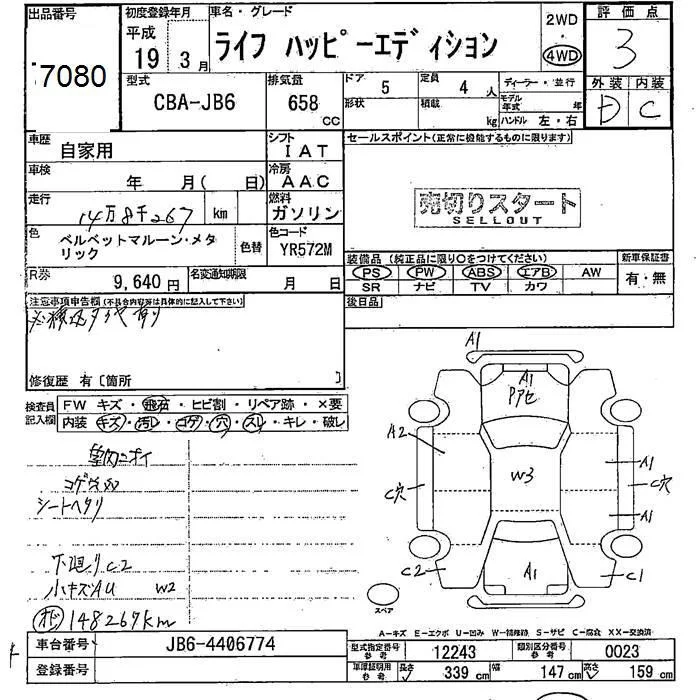 出品番号
7080
初度登録年月
平成
19 3月
車名・グレード
ライフ ハッピーエディション
2WD
・
4WD
評価点
3
外装 内装
D C
型式
CBA-JB6
排気量
658
CC
ドア 5
定員 4 人
形状
積載 kg
ディーラー・並行
モデル年式 年
ハンドル 左・右
車歴
自家用
シフト
IAT
車検
年 月( 日)
冷房
AAC
走行
14万8千267 km
燃料
ガソリン
色
ベルベットマルーン・メタリック
色替
色コード
YR572M
R券
9,640円
名変通知期限
月 日
セールスポイント(正常に機能するものに限ります)
売切りスタート
SELLOUT
装備品(純正品に限り○をつけてください)
PS PW ABS エアB AW
SR ナビ TV カワ
新車保証書
有・無
後日品
注意事項申告欄(不具合内容等は具体的に記入して下さい)
※積込タイヤ有り
修復歴 有[箇所 ]
検査員
記入欄
FW キズ・飛石・ヒビ割・リペア跡・×要
内装 キズ・汚レ・コゲ・穴・スレ・キレ・破レ
室内ニオイ
シートヘタリ
下廻りC2
小キズAU W2
148267km
A1
A1
A2
W3
A1
C穴
C穴
A1
C2
A1
C1
スペア
A-キズ E-エクボ U-凹み W-補修跡 S-サビ C-腐食 XX-交換済
車台番号
JB6-4406774
登録番号
型式指定番号
参考
12243
類別区分番号
参考
0023
車庫証明用
参考
長さ 339cm 幅 147cm 高さ 159cm